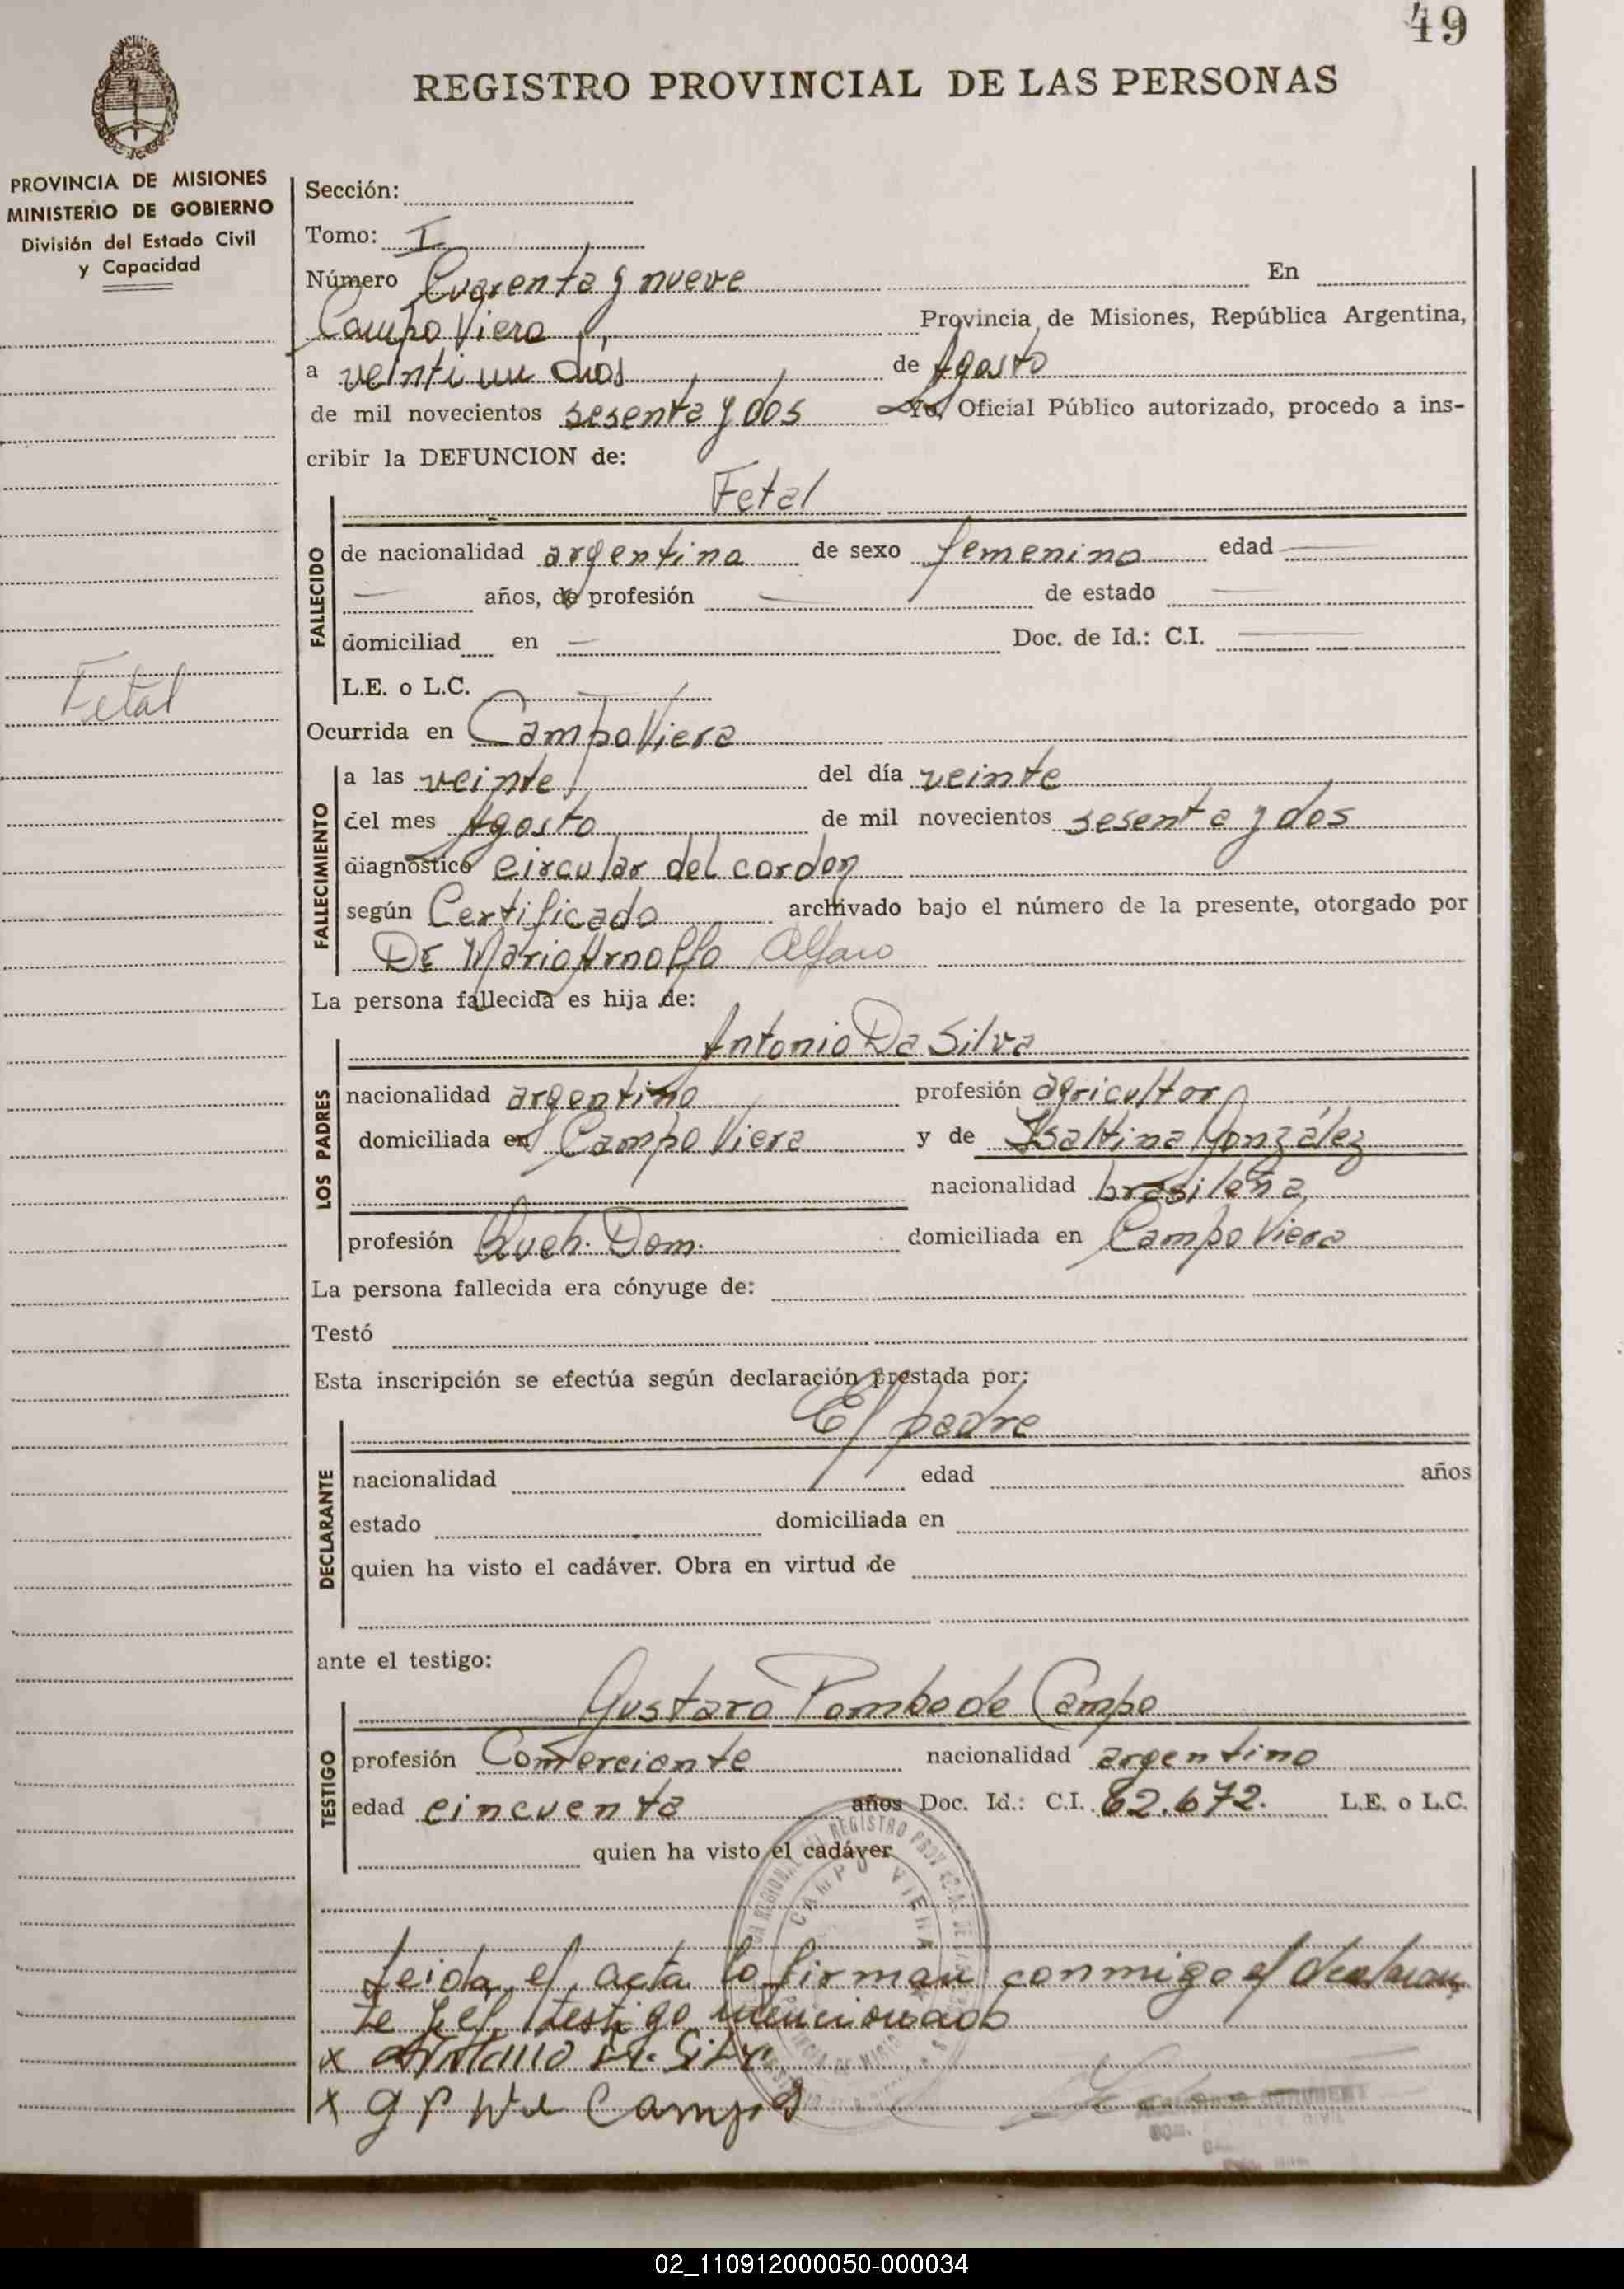 49
REGISTRO PROVINCIAL DE LAS PERSONAS
PROVINCIA DE MISIONES
MINISTERIO DE GOBIERNO
División del Estado Civil
y Capacidad
Sección:
Tomo: I
Número Cuarenta y nueve En
Campo Viera Provincia de Misiones, República Argentina,
a veinti un días de Agosto
de mil novecientos sesenta y dos Yo, Oficial Público autorizado, procedo a ins-
cribir la DEFUNCION de:
Fetal
FALLECIDO
de nacionalidad argentina de sexo femenino edad
años, de profesión de estado
domiciliad en Doc. de Id.: C.I.
L.E. o L.C.
Fetal
Ocurrida en Campo Viera
FALLECIMIENTO
a las veinte del día veinte
del mes Agosto de mil novecientos sesenta y dos
diagnóstico circular del cordon
según Certificado archivado bajo el número de la presente, otorgado por
Dr Mario Arnolfo Alfaro
La persona fallecida es hija de:
Antonio Da Silva
LOS PADRES
nacionalidad argentino profesión agricultor
domiciliada en Campo Viera y de Isaltina González
nacionalidad brasileña
profesión Queh. Dom. domiciliada en Campo Viera
La persona fallecida era cónyuge de:
Testó
Esta inscripción se efectúa según declaración prestada por:
El padre
DECLARANTE
nacionalidad edad años
estado domiciliada en
quien ha visto el cadáver. Obra en virtud de
ante el testigo:
Gustavo Pombo de Campo
TESTIGO
profesión Comerciante nacionalidad argentino
edad cincuenta años Doc. Id.: C.I. 62.672. L.E. o L.C.
quien ha visto el cadáver
CAMPO VIERA
Leida el acta lo firman conmigo el declaran
te y el testigo mencionado
x Antonio Da Silva
x
02_110912000050-000034